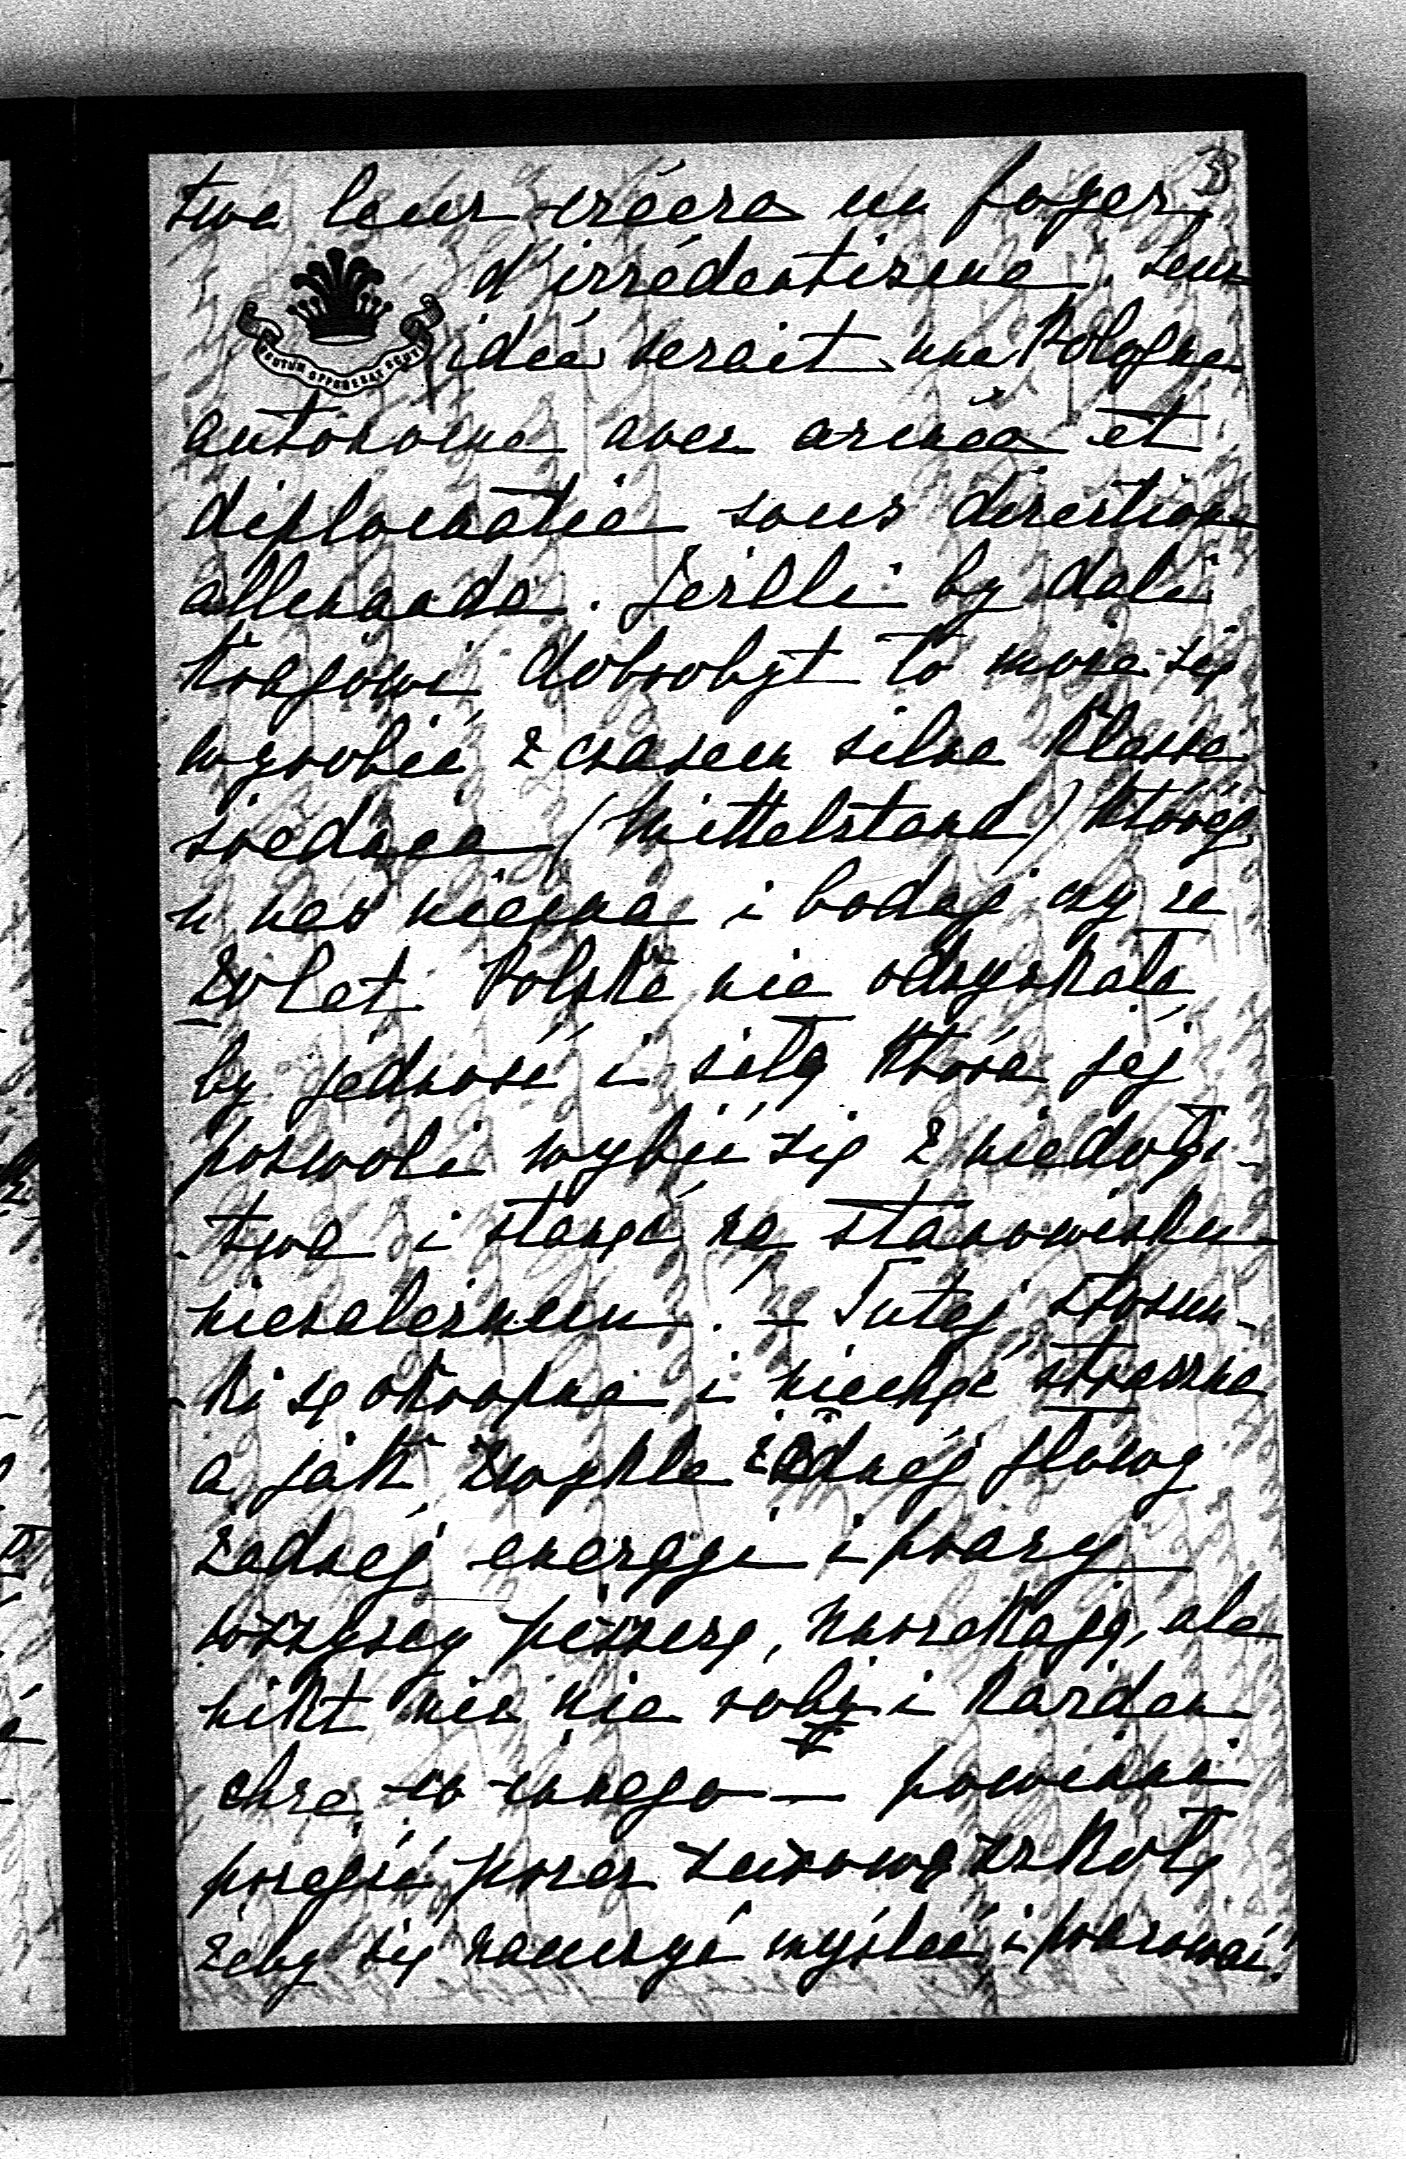 3
twa leur créera un foyer
d'irrédentisme. Leur
idée serait une Pologne
autonome avec armée et
diplomatie sous direction
allemande. Jeśli by dali
krajowi dobrobyt to może się
wyrobić z czasem silna klassa
średnia (Mittelstand) któréj
u nas niema i bodaj czy za
20 let Polska nie odzyskała
by jedność i siłą która jéj
pozwoli wybić się z niedołę-
twa i stanąć na stanowisku
niezależnem! — Tutej stosun-
ki są okropne i niechęć straszna
a jak zwykle żadnéj głowy
żadnéj energji i pracy
wszyscy piszczą, narzekają, ale
nikt nic nie robi i każden
chce co innego — powinni
przejść przez surową szkołę
żeby się nauczyć myśleć i pracować!